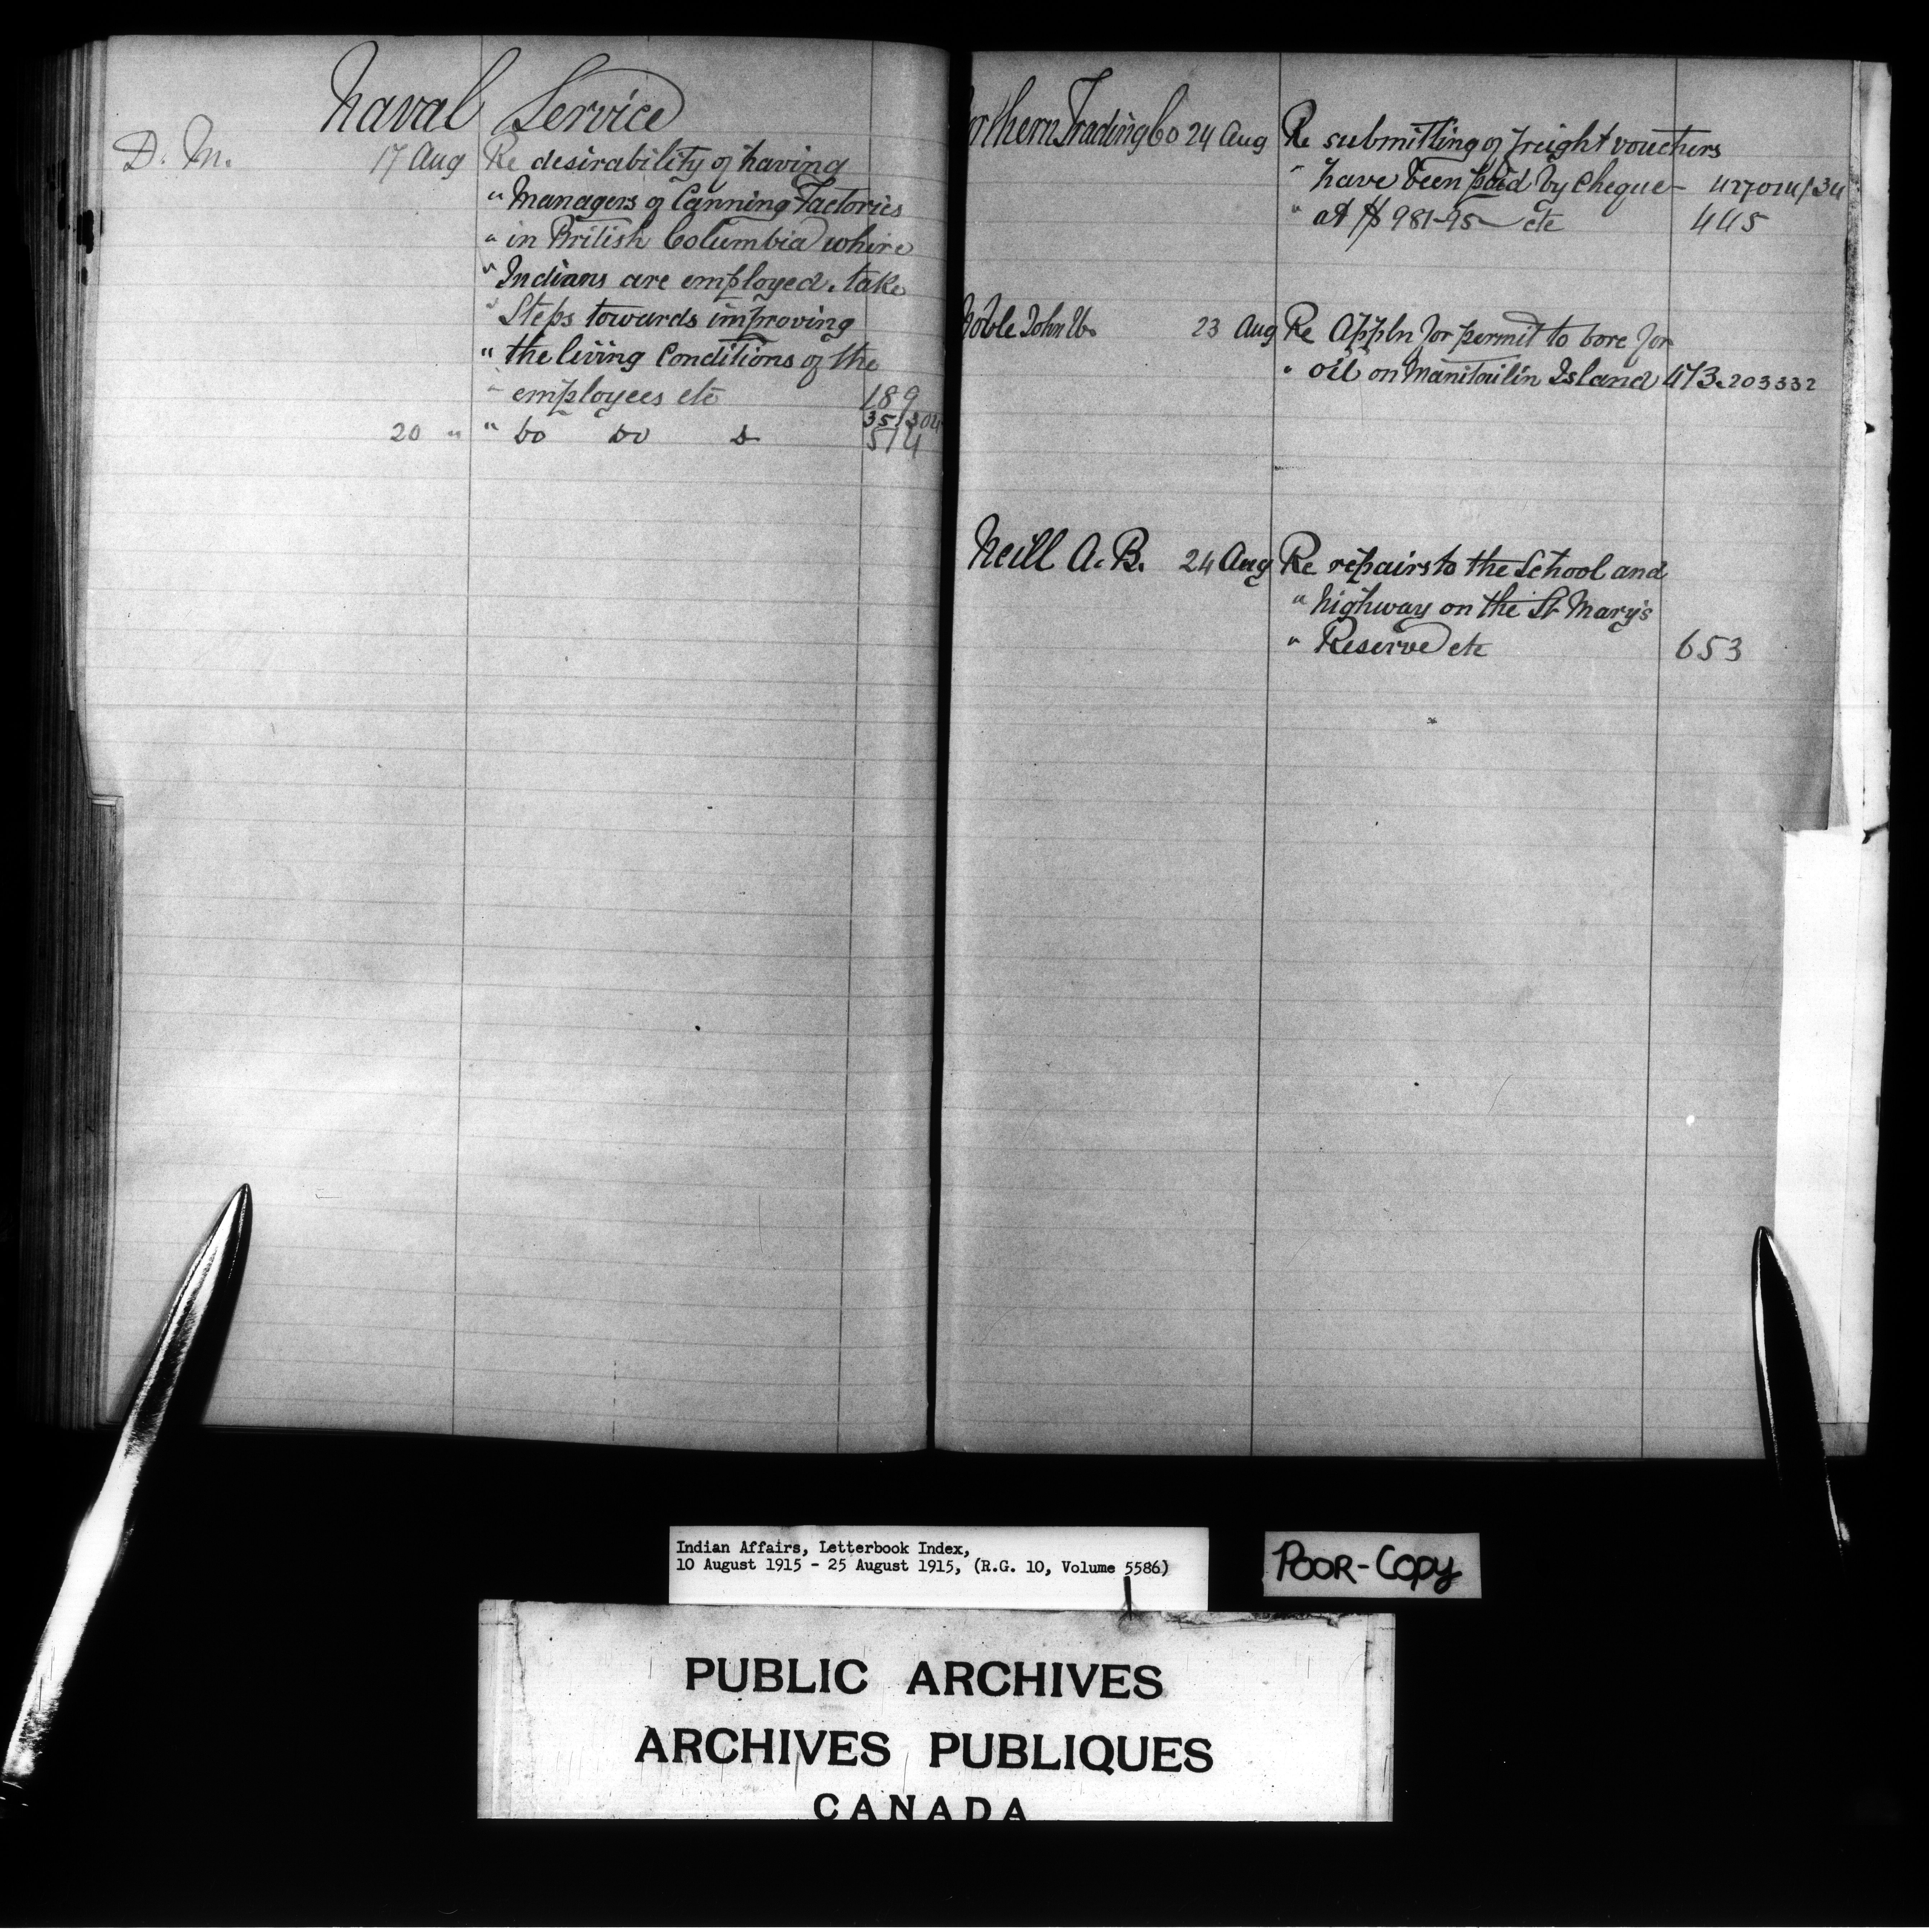 Naval Service
D. M. 17 Aug Re desirability of having
" Managers of Canning Factories
" in British Columbia where
" Indians are employed. take
" Steps towards improving
" the living Conditions of the
" employees etc 189
35/304
20 " " Do Do D 514
orthern Trading Co 24 Aug Re submitting of freight vouchers
" have been paid by Cheque - 427014/34
" at $981-95 - etc 445
Noble John 23 Aug Re Appln for permit to bore for
" oil on Manitoulin Island 473. 203332
Neill A. B. 24 Aug Re repairs to the School and
" highway on the St Mary's
" Reserve etc 653
Indian Affairs, Letterbook Index,
10 August 1915 - 25 August 1915, (R.G. 10, Volume 5586)
POOR-COPY
PUBLIC ARCHIVES
ARCHIVES PUBLIQUES
CANADA